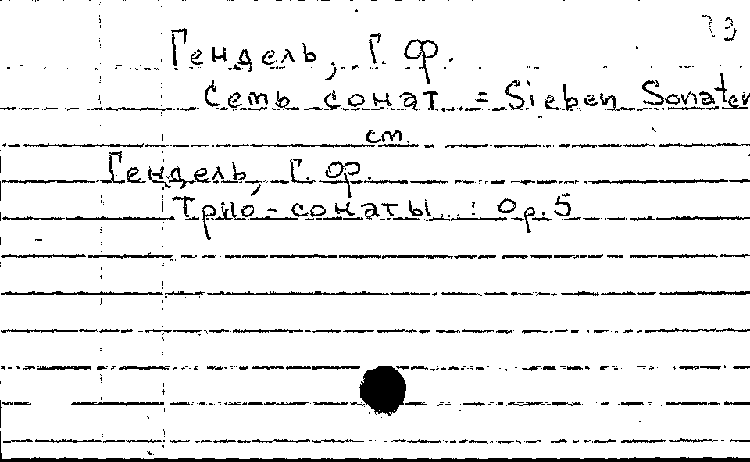 73
Гендель, Г. Ф.
Семь сонат = Sieben Sonaten
см.
Гендель, Г. Ф.
Трио-сонаты : Op. 5